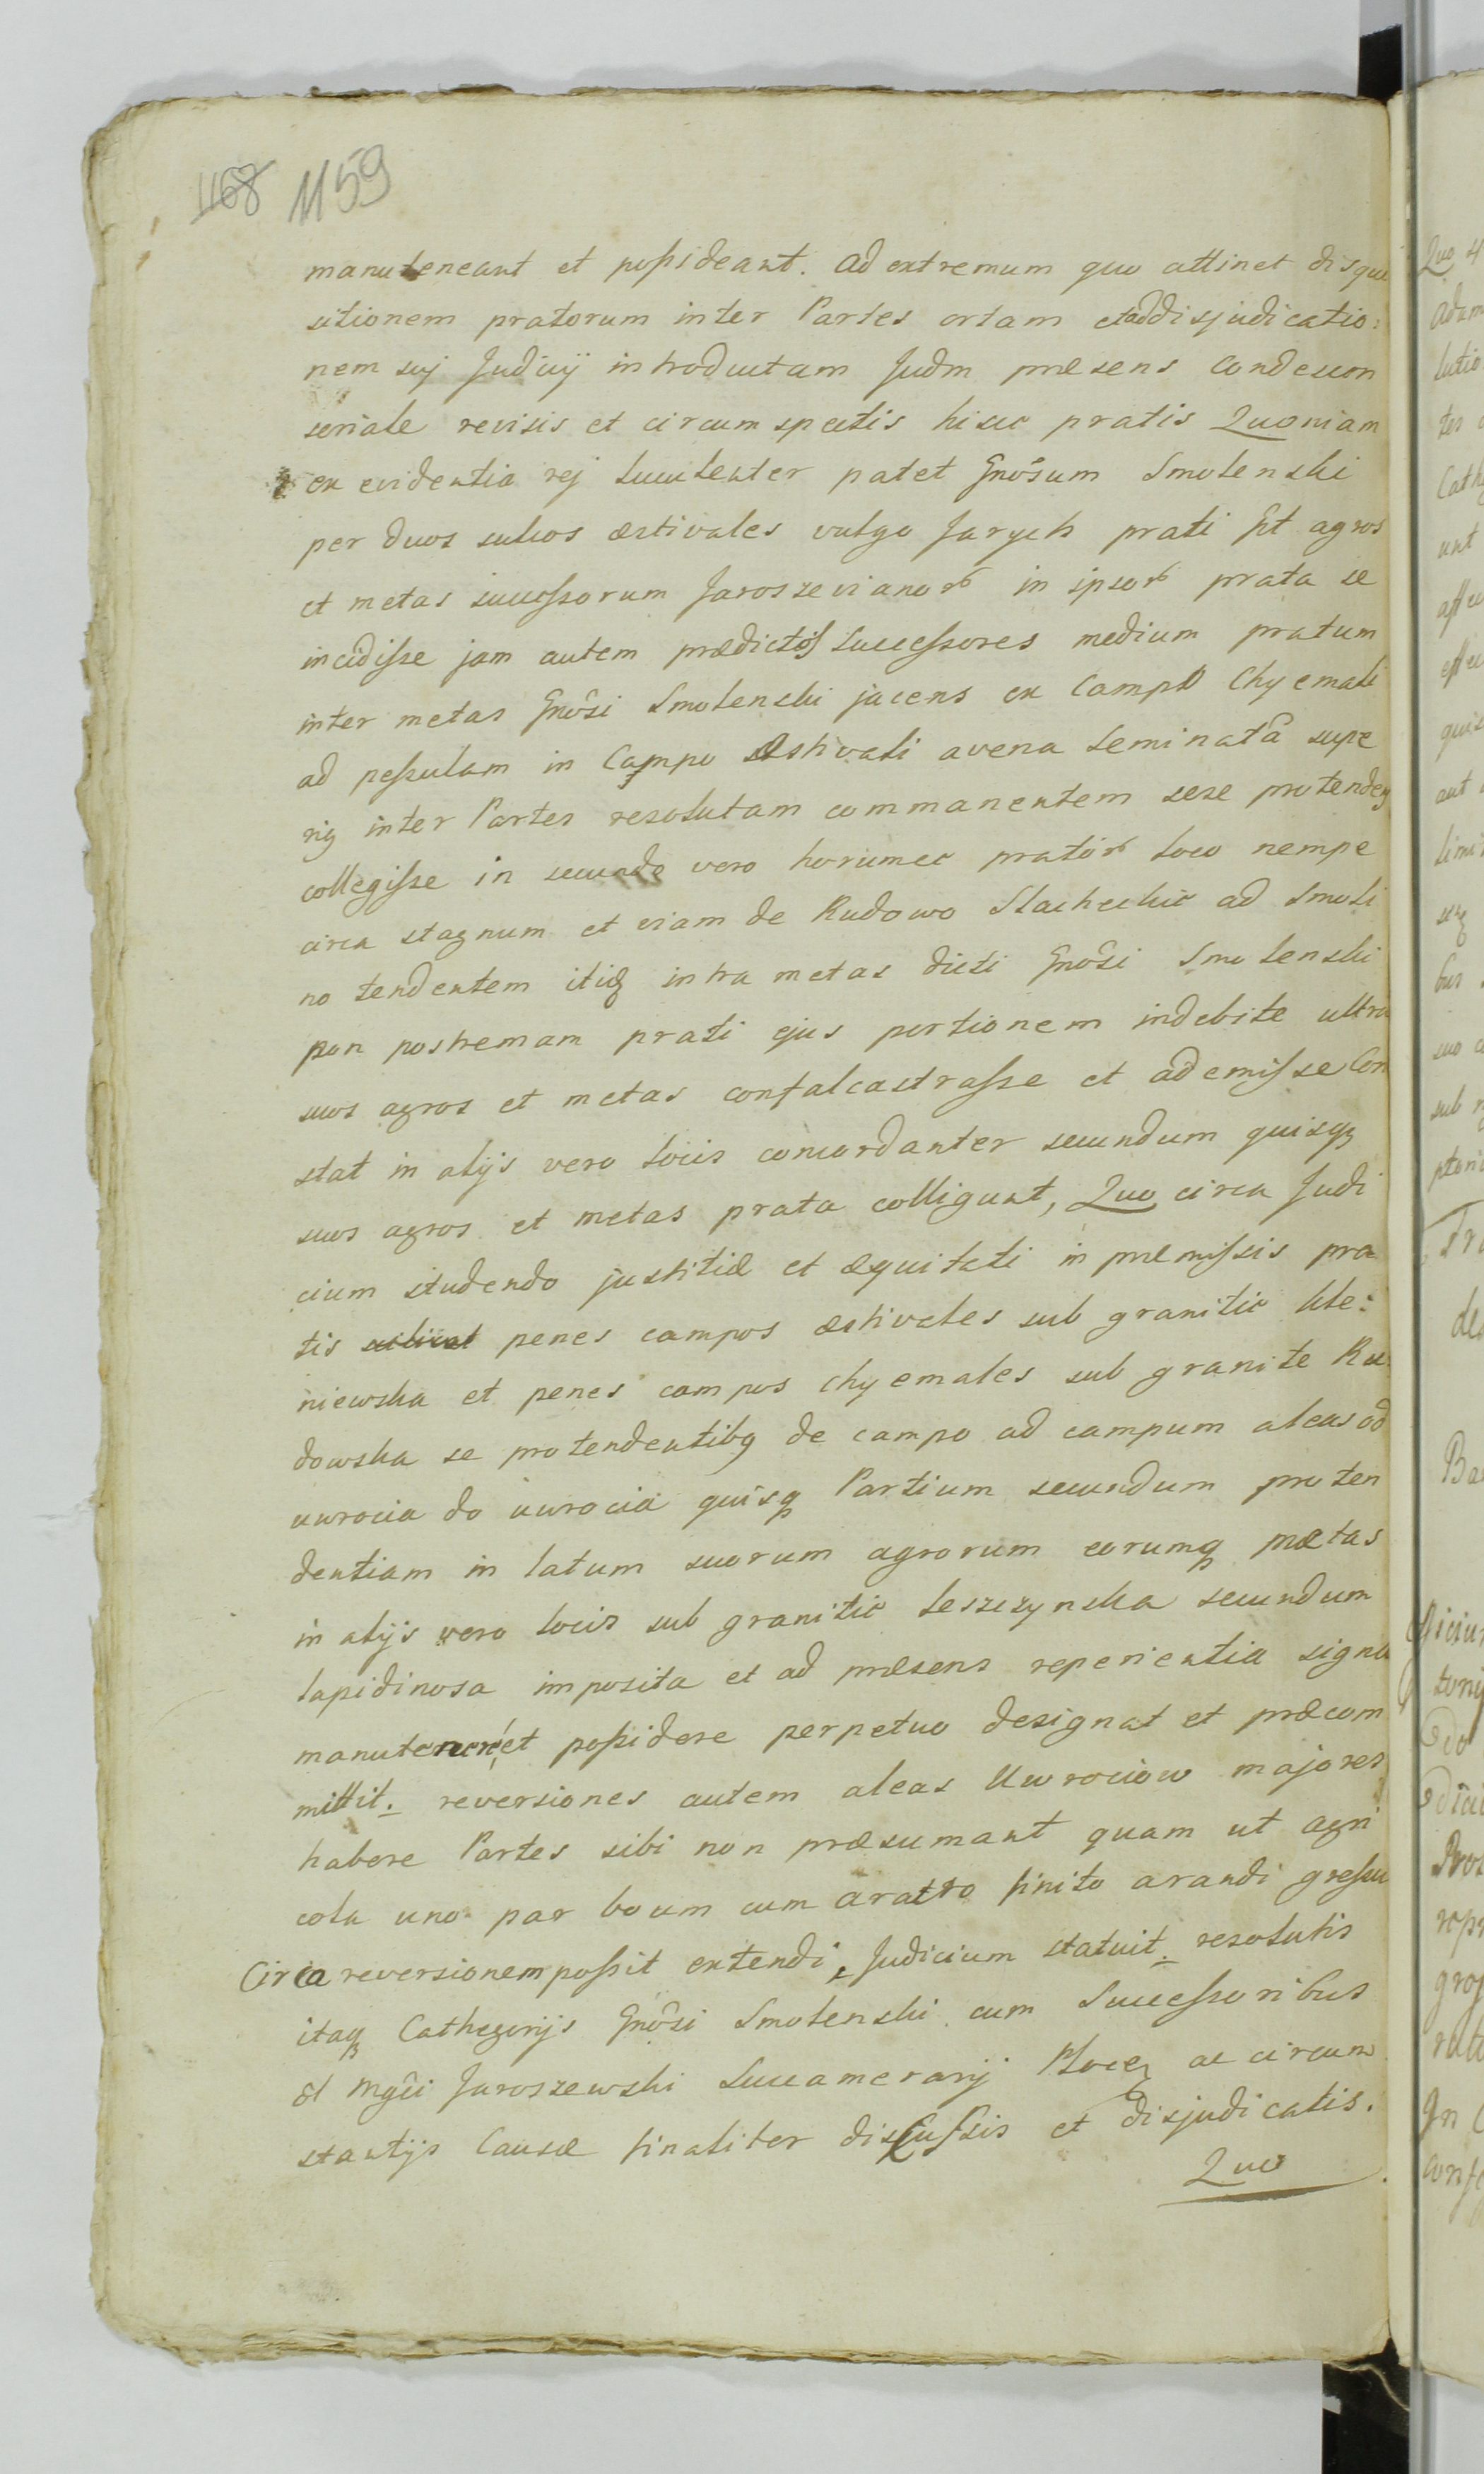 1168 1159
manuteneant et possideant. Ad extremum quo attinet disqui
sitionem pratorum inter Partes ortam et ad disjudicatio:
nem suj Judicij introductam Judm præsens Condescen
soriale revisis et circumspectis hisce pratis Quoniam
ex evidentia rej luculenter patet Gnôsum Smolenski
per duos sulcos æstivales vulgo Jarych prati sit agros
et metas successorum Jaroszevianor in ipsor prata se
incidisse jam autem prædictos Successores medium pratum
inter metas Gnôsi Smolenski jacens ex Campo Chyemali
ad pessulam in Campo Æstivali avena seminatâ supe
rig inter Partes resolutam commanentem sese protendens
collegisse in secundo vero horumce prator loco nempe
circa stagnum et viam de Rudowo Slacheckie ad Smoli
no tendentem itiq intra metas dicti Gnôsi Smolenski
pon postremam prati ejus portionem indebite ultra
suos agros et metas confalcastrasse et ademisse Con
stat in alijs vero locis concordanter secundum quisq
suos agros et metas prata colligunt, Quo circa Judi
cium studendo justitiæ et æquitati in præmissis pra
tis penes campos æstivales sub granitie Ule:
niewska et penes campos chyemales sub granite Ru
dowska se protendentibq de campo ad campum aleas od
uwrocia do uwrocia quisq Partium secundum proten
dentiam in latum suorum agrorum eorumq mætas
in alijs vero locis sub granitie Leszczynska secundum
lapidinosa imposita et ad præsens reperientia signa
manutenere et possidere perpetuo designat et præcom
mittit. reversiones autem aleas Uwrociow majores
habere Partes sibi non præsumant quam ut agri
cola uno par boum cum aratro finito arandi gressu
Circa reversionem possit extendi, Judicium statuit. resolutis
itaq Cathegorijs Gnôsi Smolenski cum Successoribus
ol Mgûi Jaroszewski Succamerarij Ploceñ ac circum
stantijs Causæ finaliter discussis et disjudicatis.
Quo